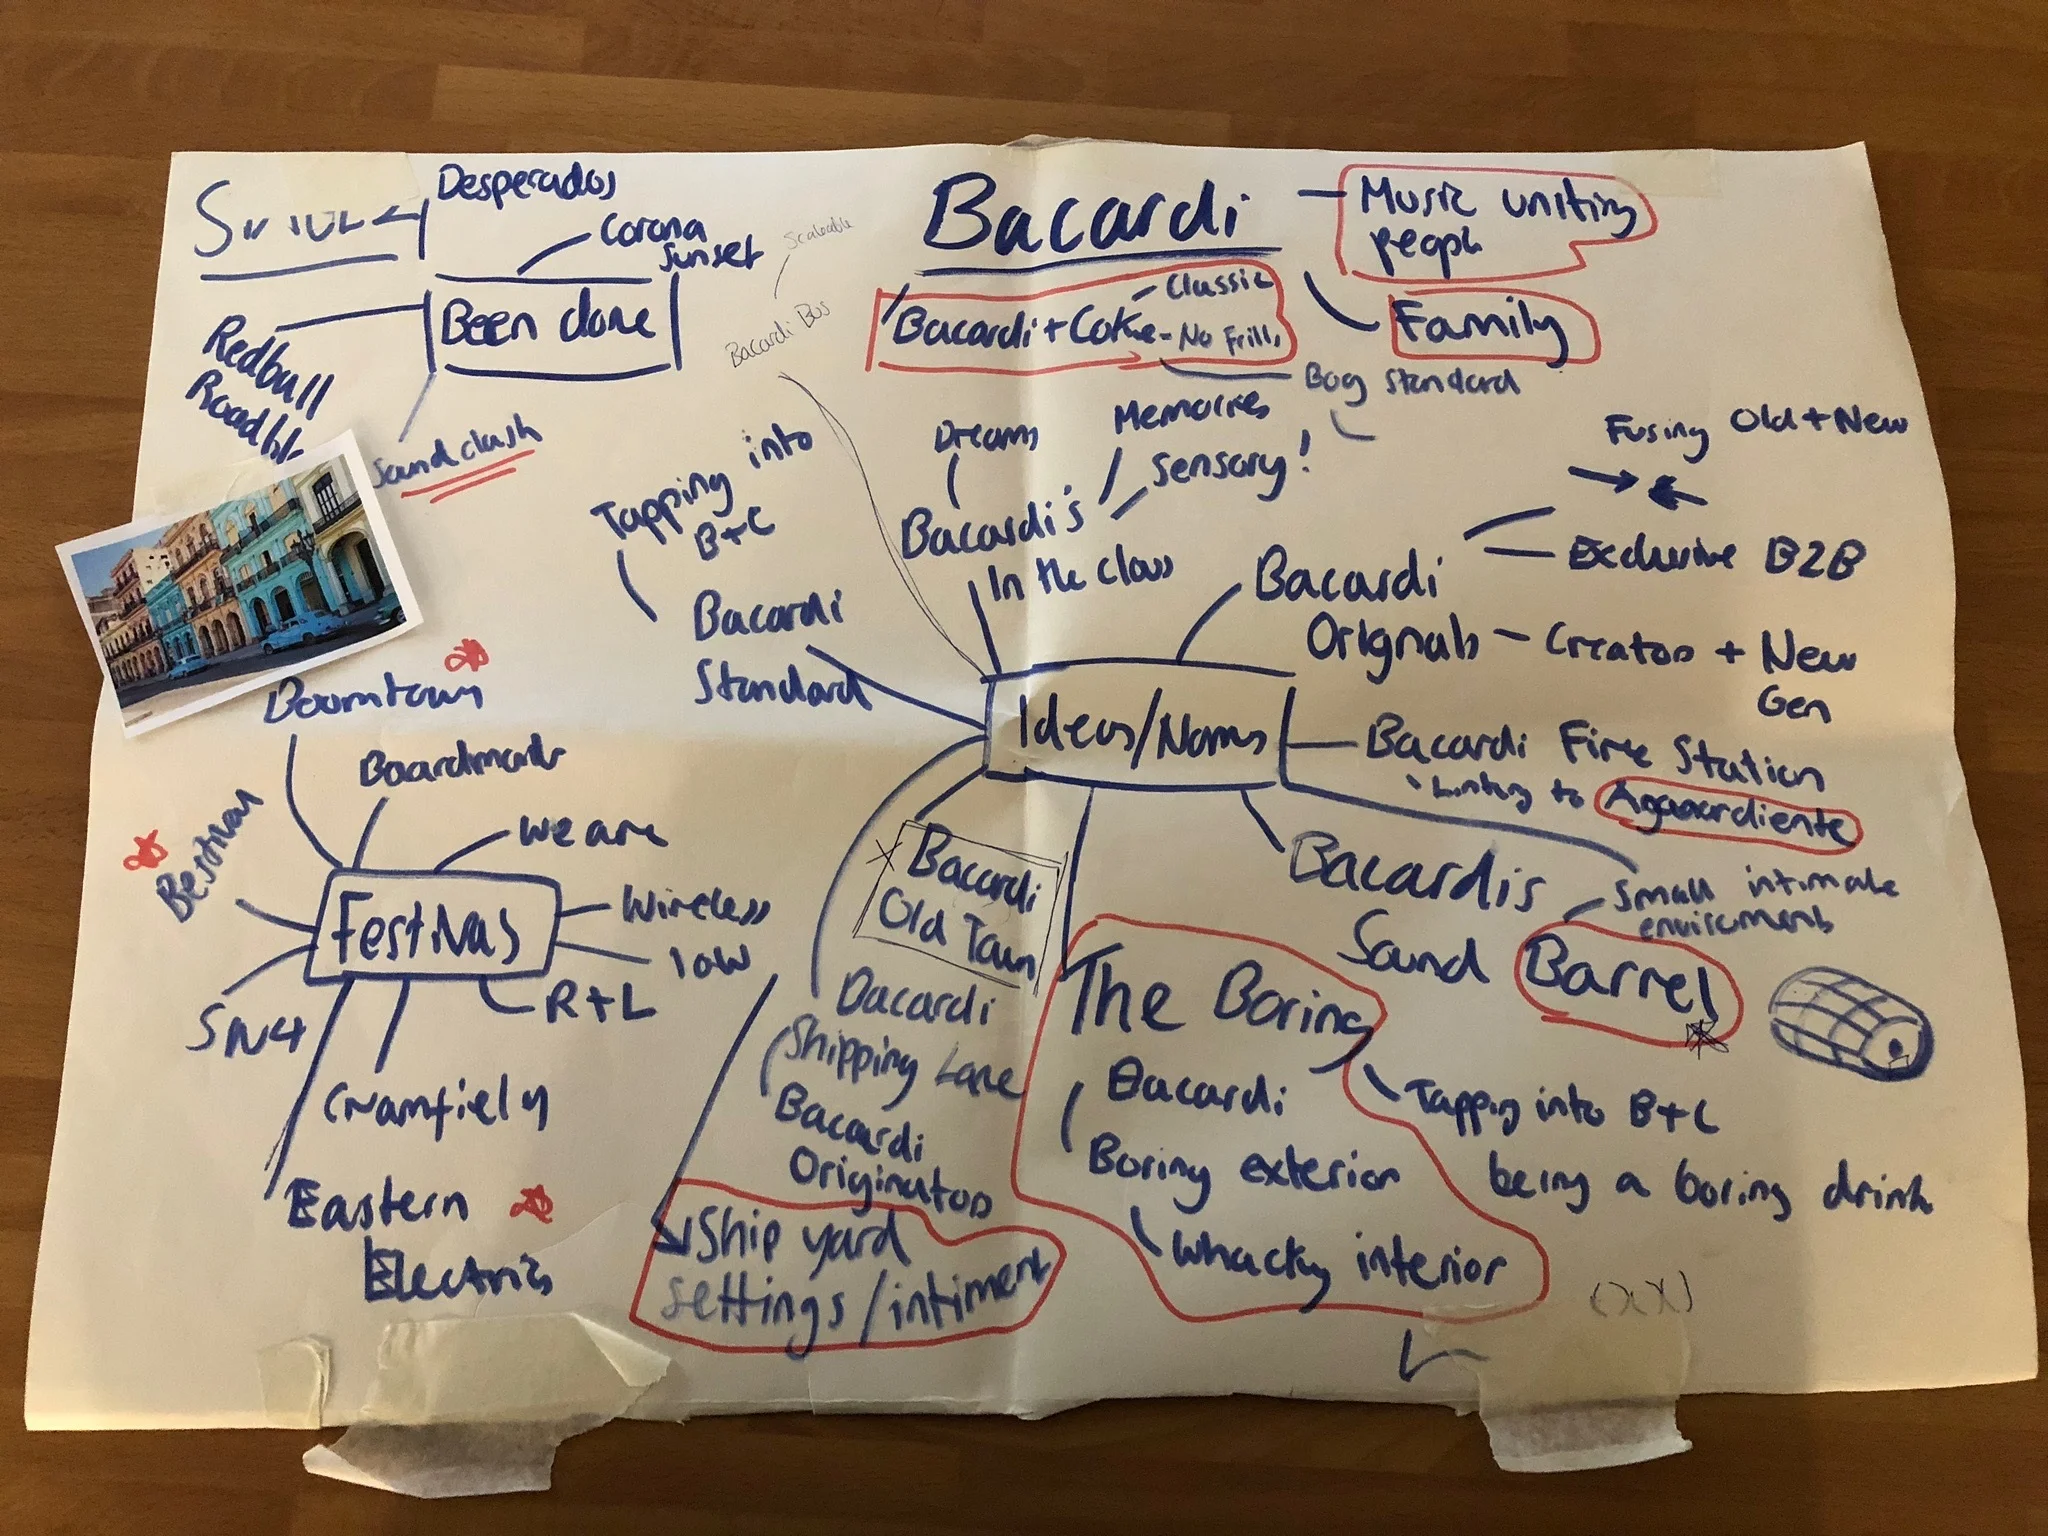 Desperados
Corona
Sunset
Been done
Redbull
Sound clash
Scaleable
Bacardi Bus
Bacardi
Music uniting
people
Family
Bacardi + Coke - Classic
- No Frills
Bog Standard
Dreams
Memories
Sensory!
Bacardi's
In the class
Tapping into
B+C
Bacardi
Standard
Fusing Old + New
Exclusive B2B
Bacardi
Orignals - Creators + New
Gen
Ideas/Names
Bacardi Fire Station
Linking to Aguaardiente
Bacardis
Sound Barrel
Small intimate
enviroments
Bacardi
Old Town
Bacardi
Shipping Lane
Bacardi
Originators
Ship yard
settings/intiment
The Boring
Bacardi
Boring exterior
Whacky interior
Tapping into B+C
being a boring drink
Boomtown
Boardmasters
Bestival
We are
Festivals
Wireless
IOW
R+L
SW4
Creamfields
Eastern
Electrics